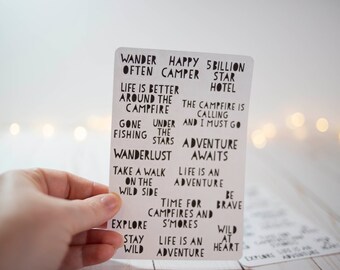 WANDER OFTEN
HAPPY CAMPER
5 BILLION STAR HOTEL
LIFE IS BETTER
AROUND THE
CAMPFIRE
THE CAMPFIRE IS
CALLING
AND I MUST GO
GONE
FISHING
UNDER
THE
STARS
ADVENTURE
AWAITS
WANDERLUST
TAKE A WALK
ON THE
WILD SIDE
LIFE IS AN
ADVENTURE
BE
BRAVE
TIME FOR
CAMPFIRES AND
S'MORES
EXPLORE
WILD
AT
HEART
STAY
WILD
LIFE IS AN
ADVENTURE